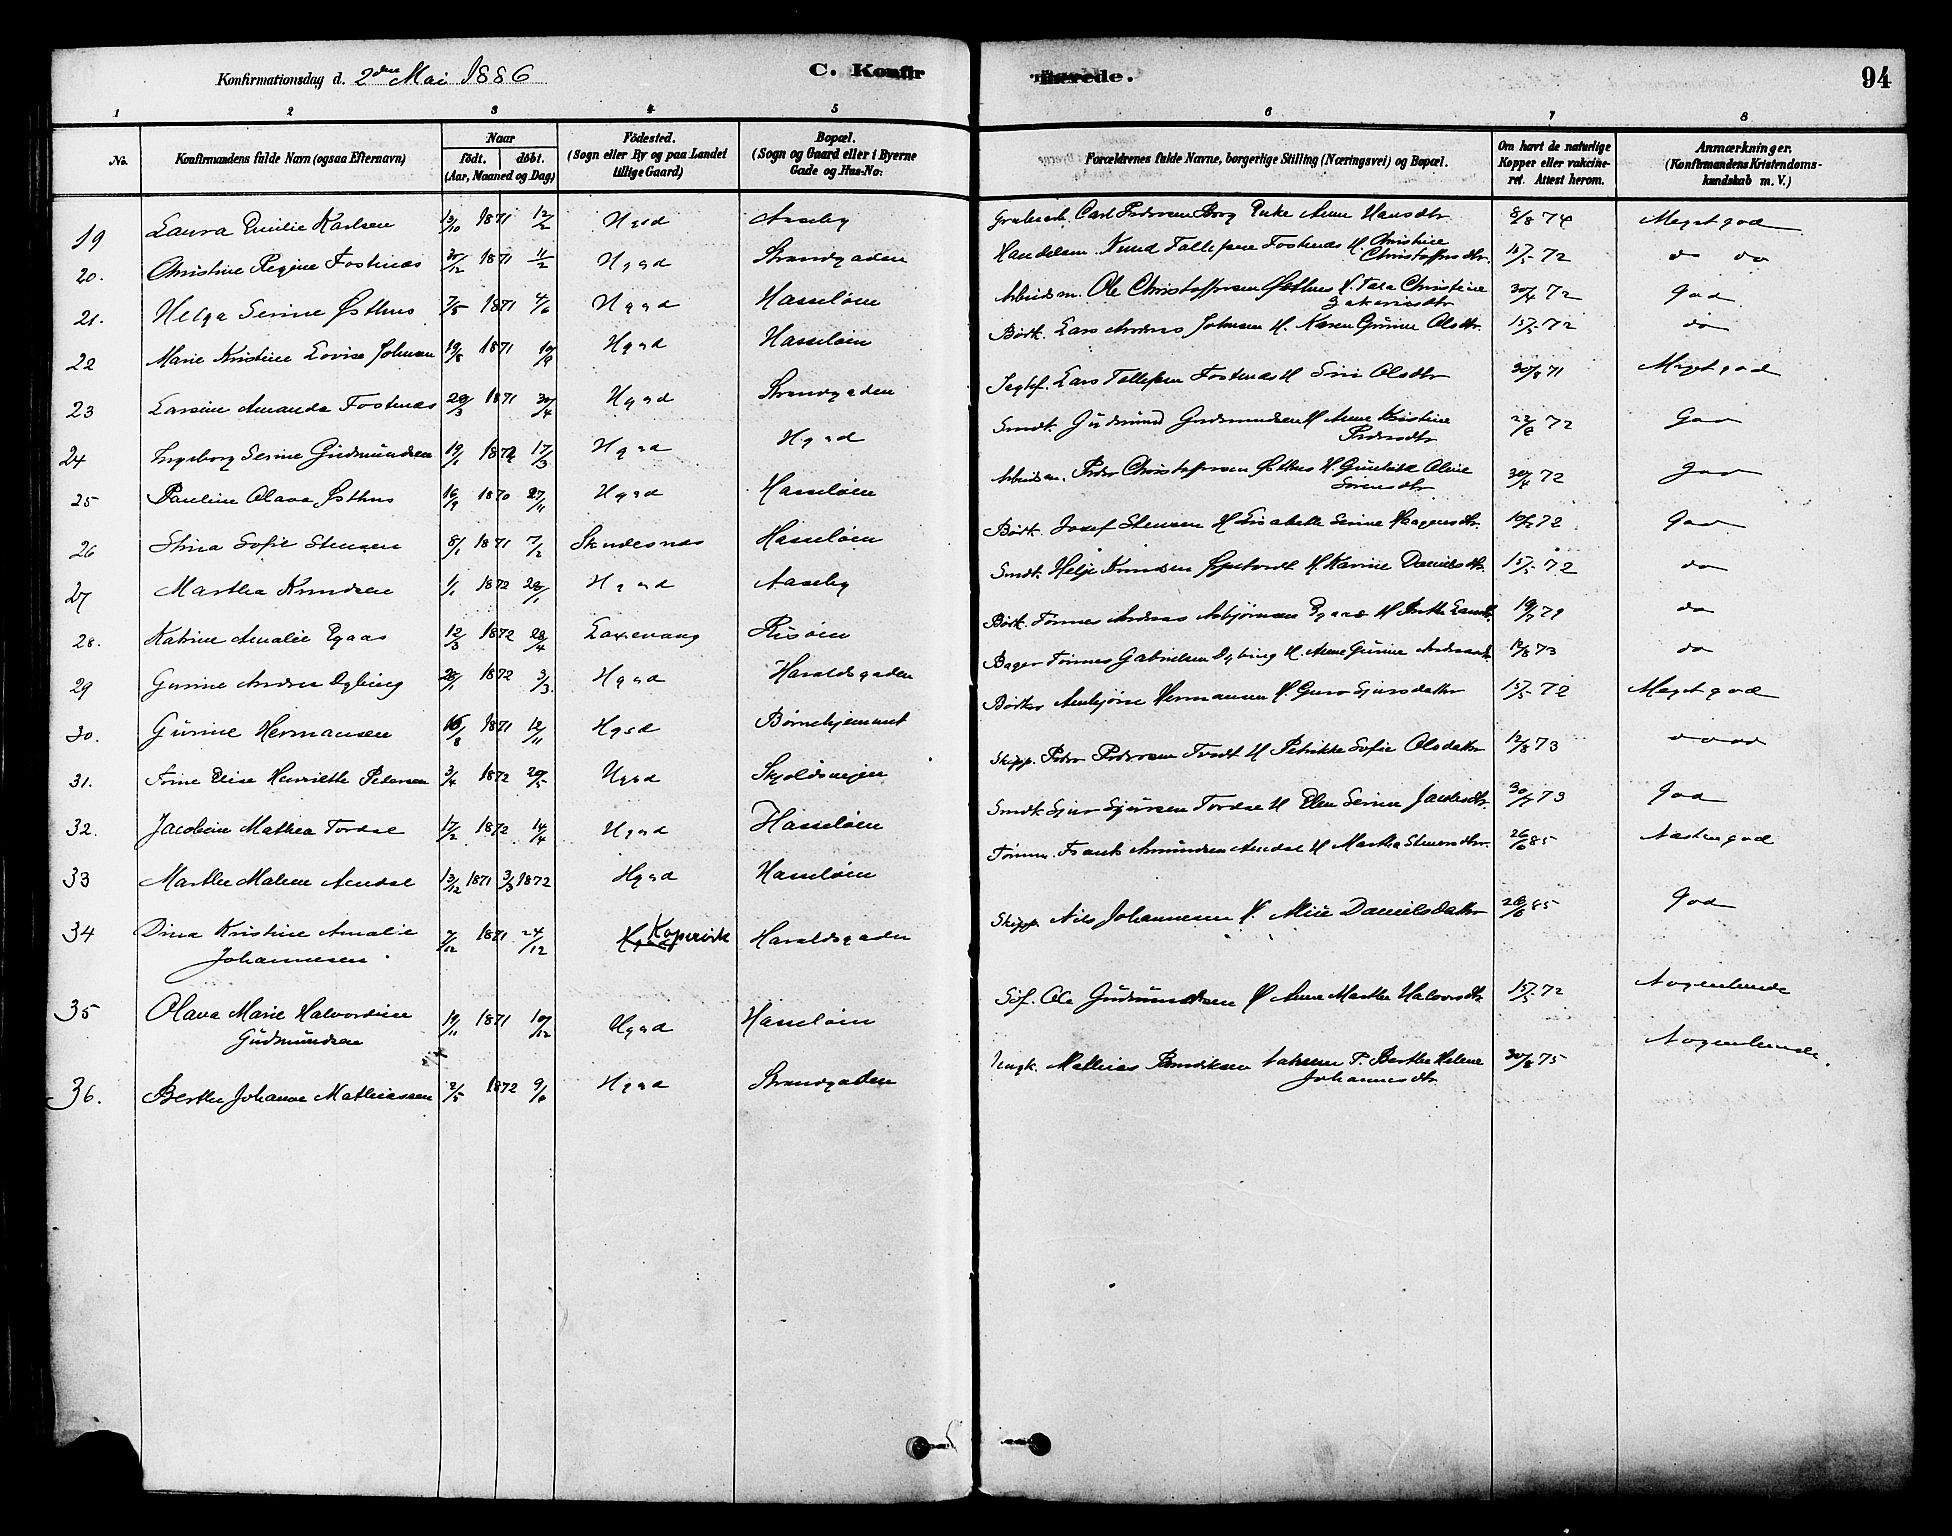 Konfirmationsdag d. 2den Mai 1886 C. Konfirmerede. 94
1 2 3 4 5 6 7 8
No. Konfirmandens fulde Navn (ogsaa Efternavn) Naar født. døbt. (Aar, Maaned og Dag) Fødested. (Sogn eller By og paa Landet tillige Gaard) Bopæl. (Sogn og Gaard eller i Byerne Gade og Hus-No. Forældrenes fulde Navne, borgerlige Stilling (Næringsvei) og Bopæl. Om havt de naturlige Kopper eller vakcineret. Attest herom. Anmærkninger. (Konfirmandens Kristendomskundskab m. V.)
19 Laura Emilie Karlsen 13/10 1871 12/2 Hgsd Aaseby Carl Pedersen Borg Enke Anne Hansdtr 8/8 74 Meget god
20. Christine Regine Fostenæs 30/12 1871 11/2 Hgsd Strandgaden Handelsm. Knud Tollefsen Fostenæs H. Christine Christoffersdtr. 15/5 72 do do
21. Helga Serine Østhus 7/5 1871 4/6 Hgsd Hasseløen Arbeidsm. Ole Christoffersen Østhus H. Tala Christine Zakariasdtr 30/4 72 God
22 Marie Kristine Lovise Johnsen 19/8 1871 10/9 Hgsd Hasseløen Bødk. Lars Andreas Johnsen H. Karen Gurine Olsdtr. 15/5 72 do
23 Larsine Amanda Fostenæs 20/3 1871 30/4 Hgsd Strandgaden Lars Tollefsen Fostenæs H Siri Olsdtr 30/8 71 Meget god
24 Ingeborg Serine Gudmundsen 19/1 1872 17/3 Hgsd Hgsd Smdt. Gudmund Gudmundsen H Anne Kristine Pedersdtr 22/8 72 God
25 Pauline Olava Østhus 16/9 1870 27/11 Hgsd Hasseløen Arbeidsm. Peder Christoffersen Østhus H. Gunhild Oline Sørensdtr 30/4 72 God
26 Stina Sofie Stensen 8/1 1871 7/2 Skudesnæs Hasseløen Bødk. Josef Stensen H Elisabeth Serine Haagensdtr. 10/5 72 God
27 Martha Knudsen 1/1 1872 28/1 Hgsd Aaseby Smdt. Helje Knudsen H Karine Danielsdtr. 15/5 72 do
28. Katrine Amalie Egaas 12/3 1872 28/4 Laxevaag Risøen Bødk. Tønnes Andreas Asbjørnsen Egaas H 19/7 79 do
29 Gurine Andrea Dybing 28/1 1872 3/3. Hgsd Haraldsgaden Bager Tønnes Gabrielsen Dybing H. Anne Gurine 12/8 73 do
30. Gurine Hermansen 16/8 1871 12/11 Hgsd Børnehjemmet Bødker Hermansen H. Guro Sjursdatter 15/5 72 Meget god
31. Trine Elise Henriette Pedersen 3/4 1872 20/5 Hgsd Skjoldsveien Skipp. Peder Pedersen Tvedt H Petrikke Sofie Olsdatter 12/8 73 do do
32. Jacobine Mathea Tordal 17/2 1872 14/4 Hgsd Hasseløen Smdt. Sjur Sjursen Tordal H Elen Serine Jacobsdtr. 30/7 73 God
33 Marthe Malene Aendal 13/12 1871 3/3 1872 Hgsd Hasseløen Tømm. Amundsen Aendal H Martha Stensdtr. 26/6 85 Næsten god
34 Dina Kristine Amalie Johannesen 7/12 1871 24/12 Kopervik Haraldsgaden Skipp. Nils Johannesen H. Danielsdatter 26/6 85 God
35 Olava Marie Halvordine Gudmundsen 19/11 1871 10/12 Hgsd Hasseløen Søf. Ole Gudmundsen H Anne Marthe Halvorsdtr 15/5 72 Nogenlunde
36. Berthe Johanne Mathiassen 2/5 1872 9/6 Hgsd Strandgaden Ungk. Mathias P. Berthe Helene Johannesdtr 30/8 75 Nogenlunde